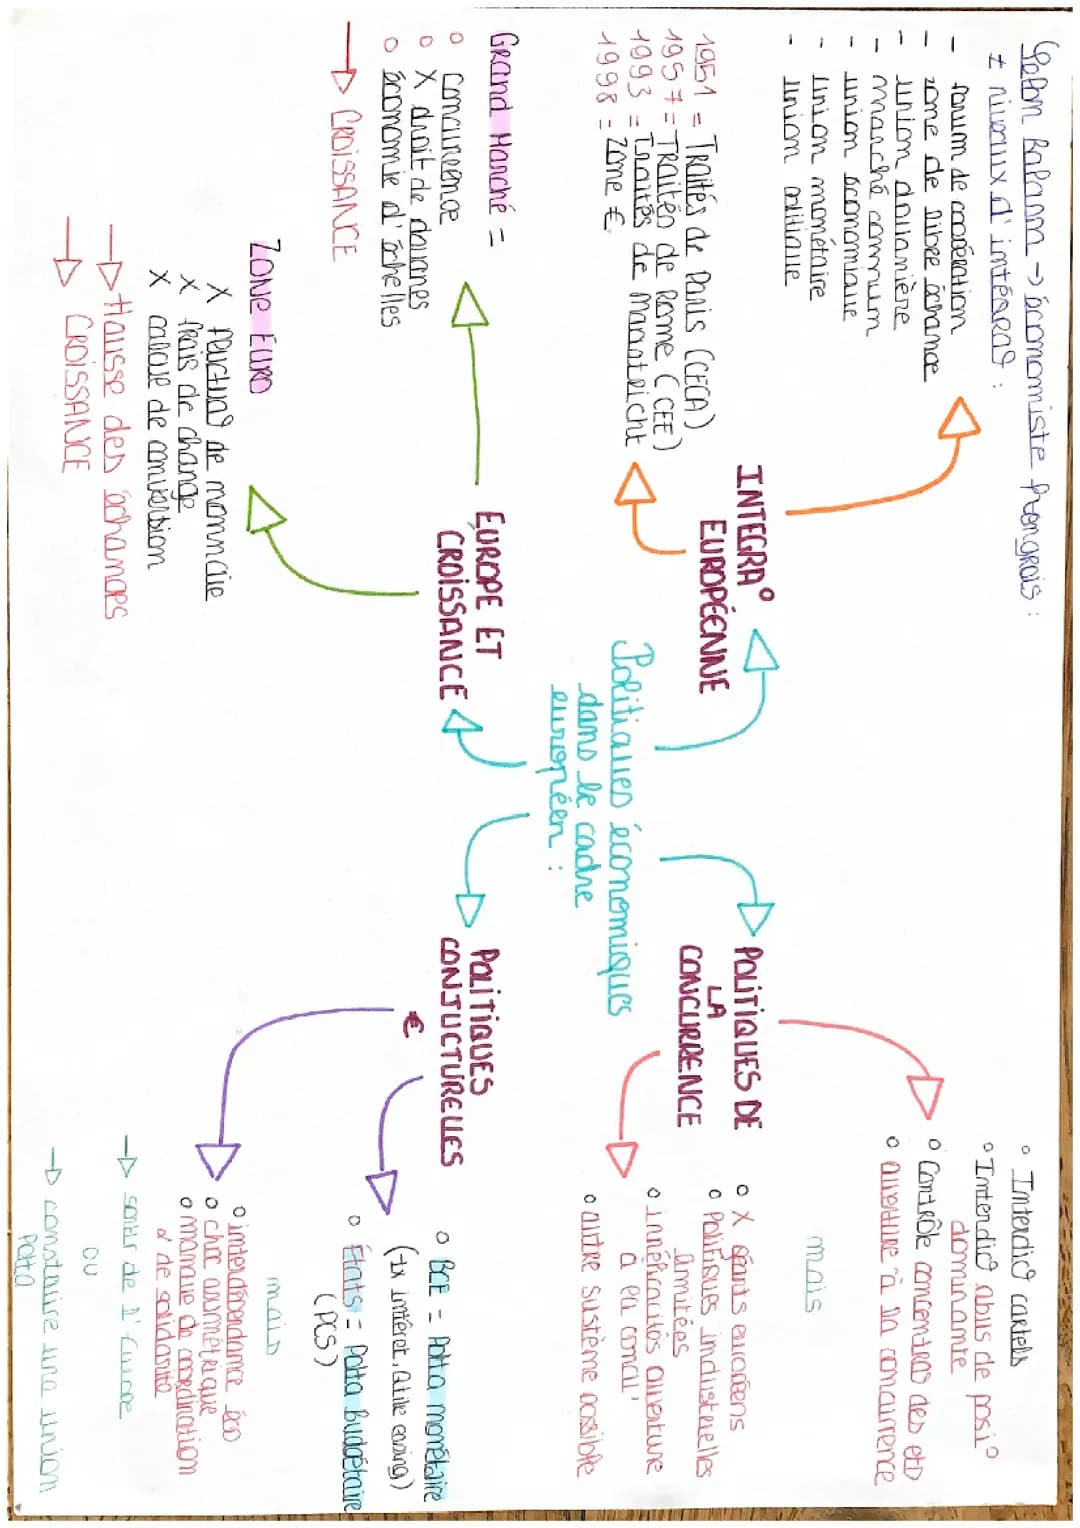 Politiques économiques
dans le cadre
européen :
INTEGRA°
EUROPÉENNE
Selon Balassa → économiste hongrois :
± niveaux d'intégra° :
- forum de coopération
- zone de libre échange
- union douanière
- marché commun
- union économique
- union monétaire
- union politique
1951 = Traités de Paris (CECA)
1957 = Traités de Rome (CEE)
1993 = Traités de Maastricht
1998 = Zone €
EUROPE ET
CROISSANCE
Grand Marché =
° Concurrence
° X droit de douanes
° économie d'échelles
→ CROISSANCE
ZONE EURO
X fluctua° de monnaie
X frais de change
X calcul de conversion
→ Hausse des échanges
→ CROISSANCE
POLITIQUES DE
LA
CONCURRENCE
° Interdic° cartels
° Interdic° abus de posi°
dominante
° Contrôle concentra° des et
° ouverture à la concurrence
mais
° X géants européens
° Politiques industuelles
limitées
° inéfficacités ouverture
à la concu'
° autre système possible
POLITIQUES
CONJUCTURELLES
€
° BCE = Polita monétaire
(tx intéret, Qtile easing)
° États = Polta budgétaire
(PCS)
mais
° interdépendance éco
° choc asymétrique
° manque de coordination
& de solidarité
→ sortir de l'Europe
ou
→ construire une union
Polta